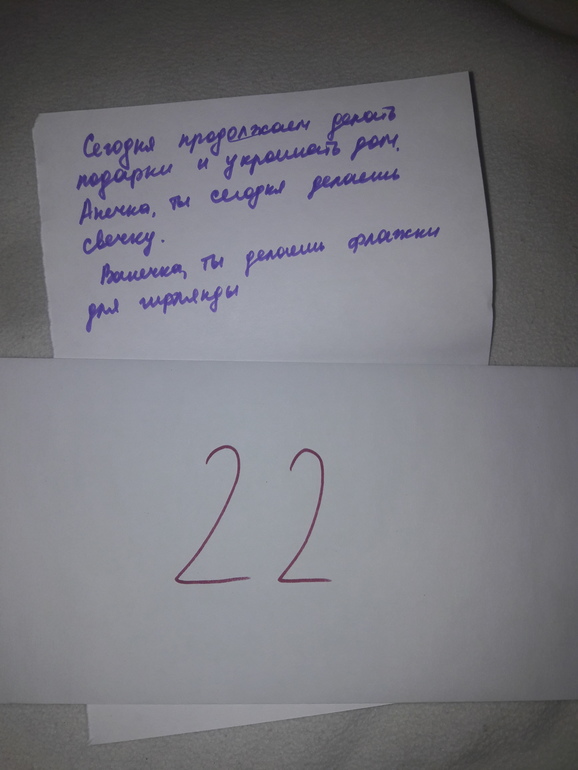 Сегодня продолжаем делать
подарки и украшать дом.
Анечка, ты сегодня делаешь
свечку.
Ванечка, ты делаешь флажки
для гирлянды
22